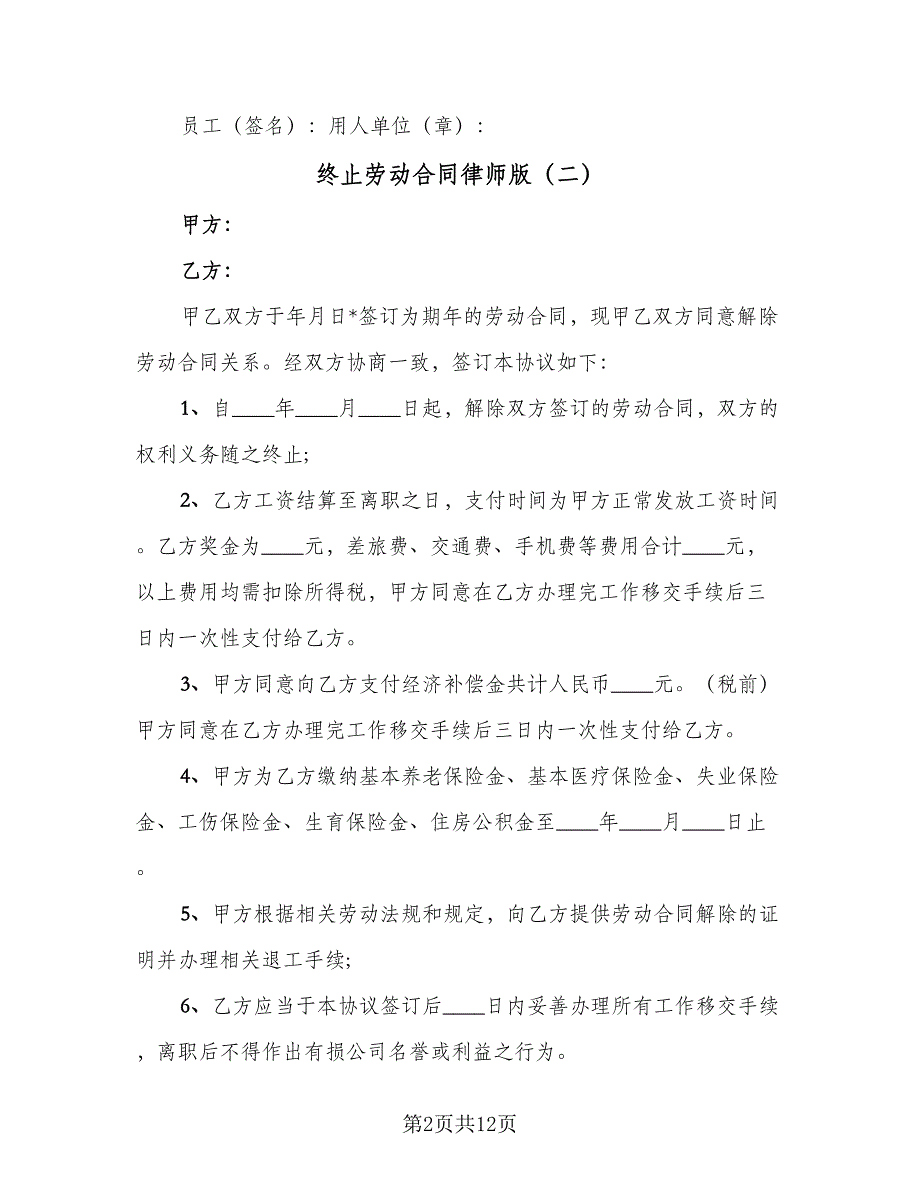 员工（签名）：用人单位（章）：
终止劳动合同律师版（二）
甲方：
乙方：
甲乙双方于年月日*签订为期年的劳动合同，现甲乙双方同意解除
劳动合同关系。经双方协商一致，签订本协议如下：
1、自____年____月____日起，解除双方签订的劳动合同，双方的
权利义务随之终止;
2、乙方工资结算至离职之日，支付时间为甲方正常发放工资时间
。乙方奖金为____元，差旅费、交通费、手机费等费用合计____元，
以上费用均需扣除所得税，甲方同意在乙方办理完工作移交手续后三
日内一次性支付给乙方。
3、甲方同意向乙方支付经济补偿金共计人民币____元。（税前）
甲方同意在乙方办理完工作移交手续后三日内一次性支付给乙方。
4、甲方为乙方缴纳基本养老保险金、基本医疗保险金、失业保险
金、工伤保险金、生育保险金、住房公积金至____年____月____日止
。
5、甲方根据相关劳动法规和规定，向乙方提供劳动合同解除的证
明并办理相关退工手续;
6、乙方应当于本协议签订后____日内妥善办理所有工作移交手续
，离职后不得作出有损公司名誉或利益之行为。
第2页共12页